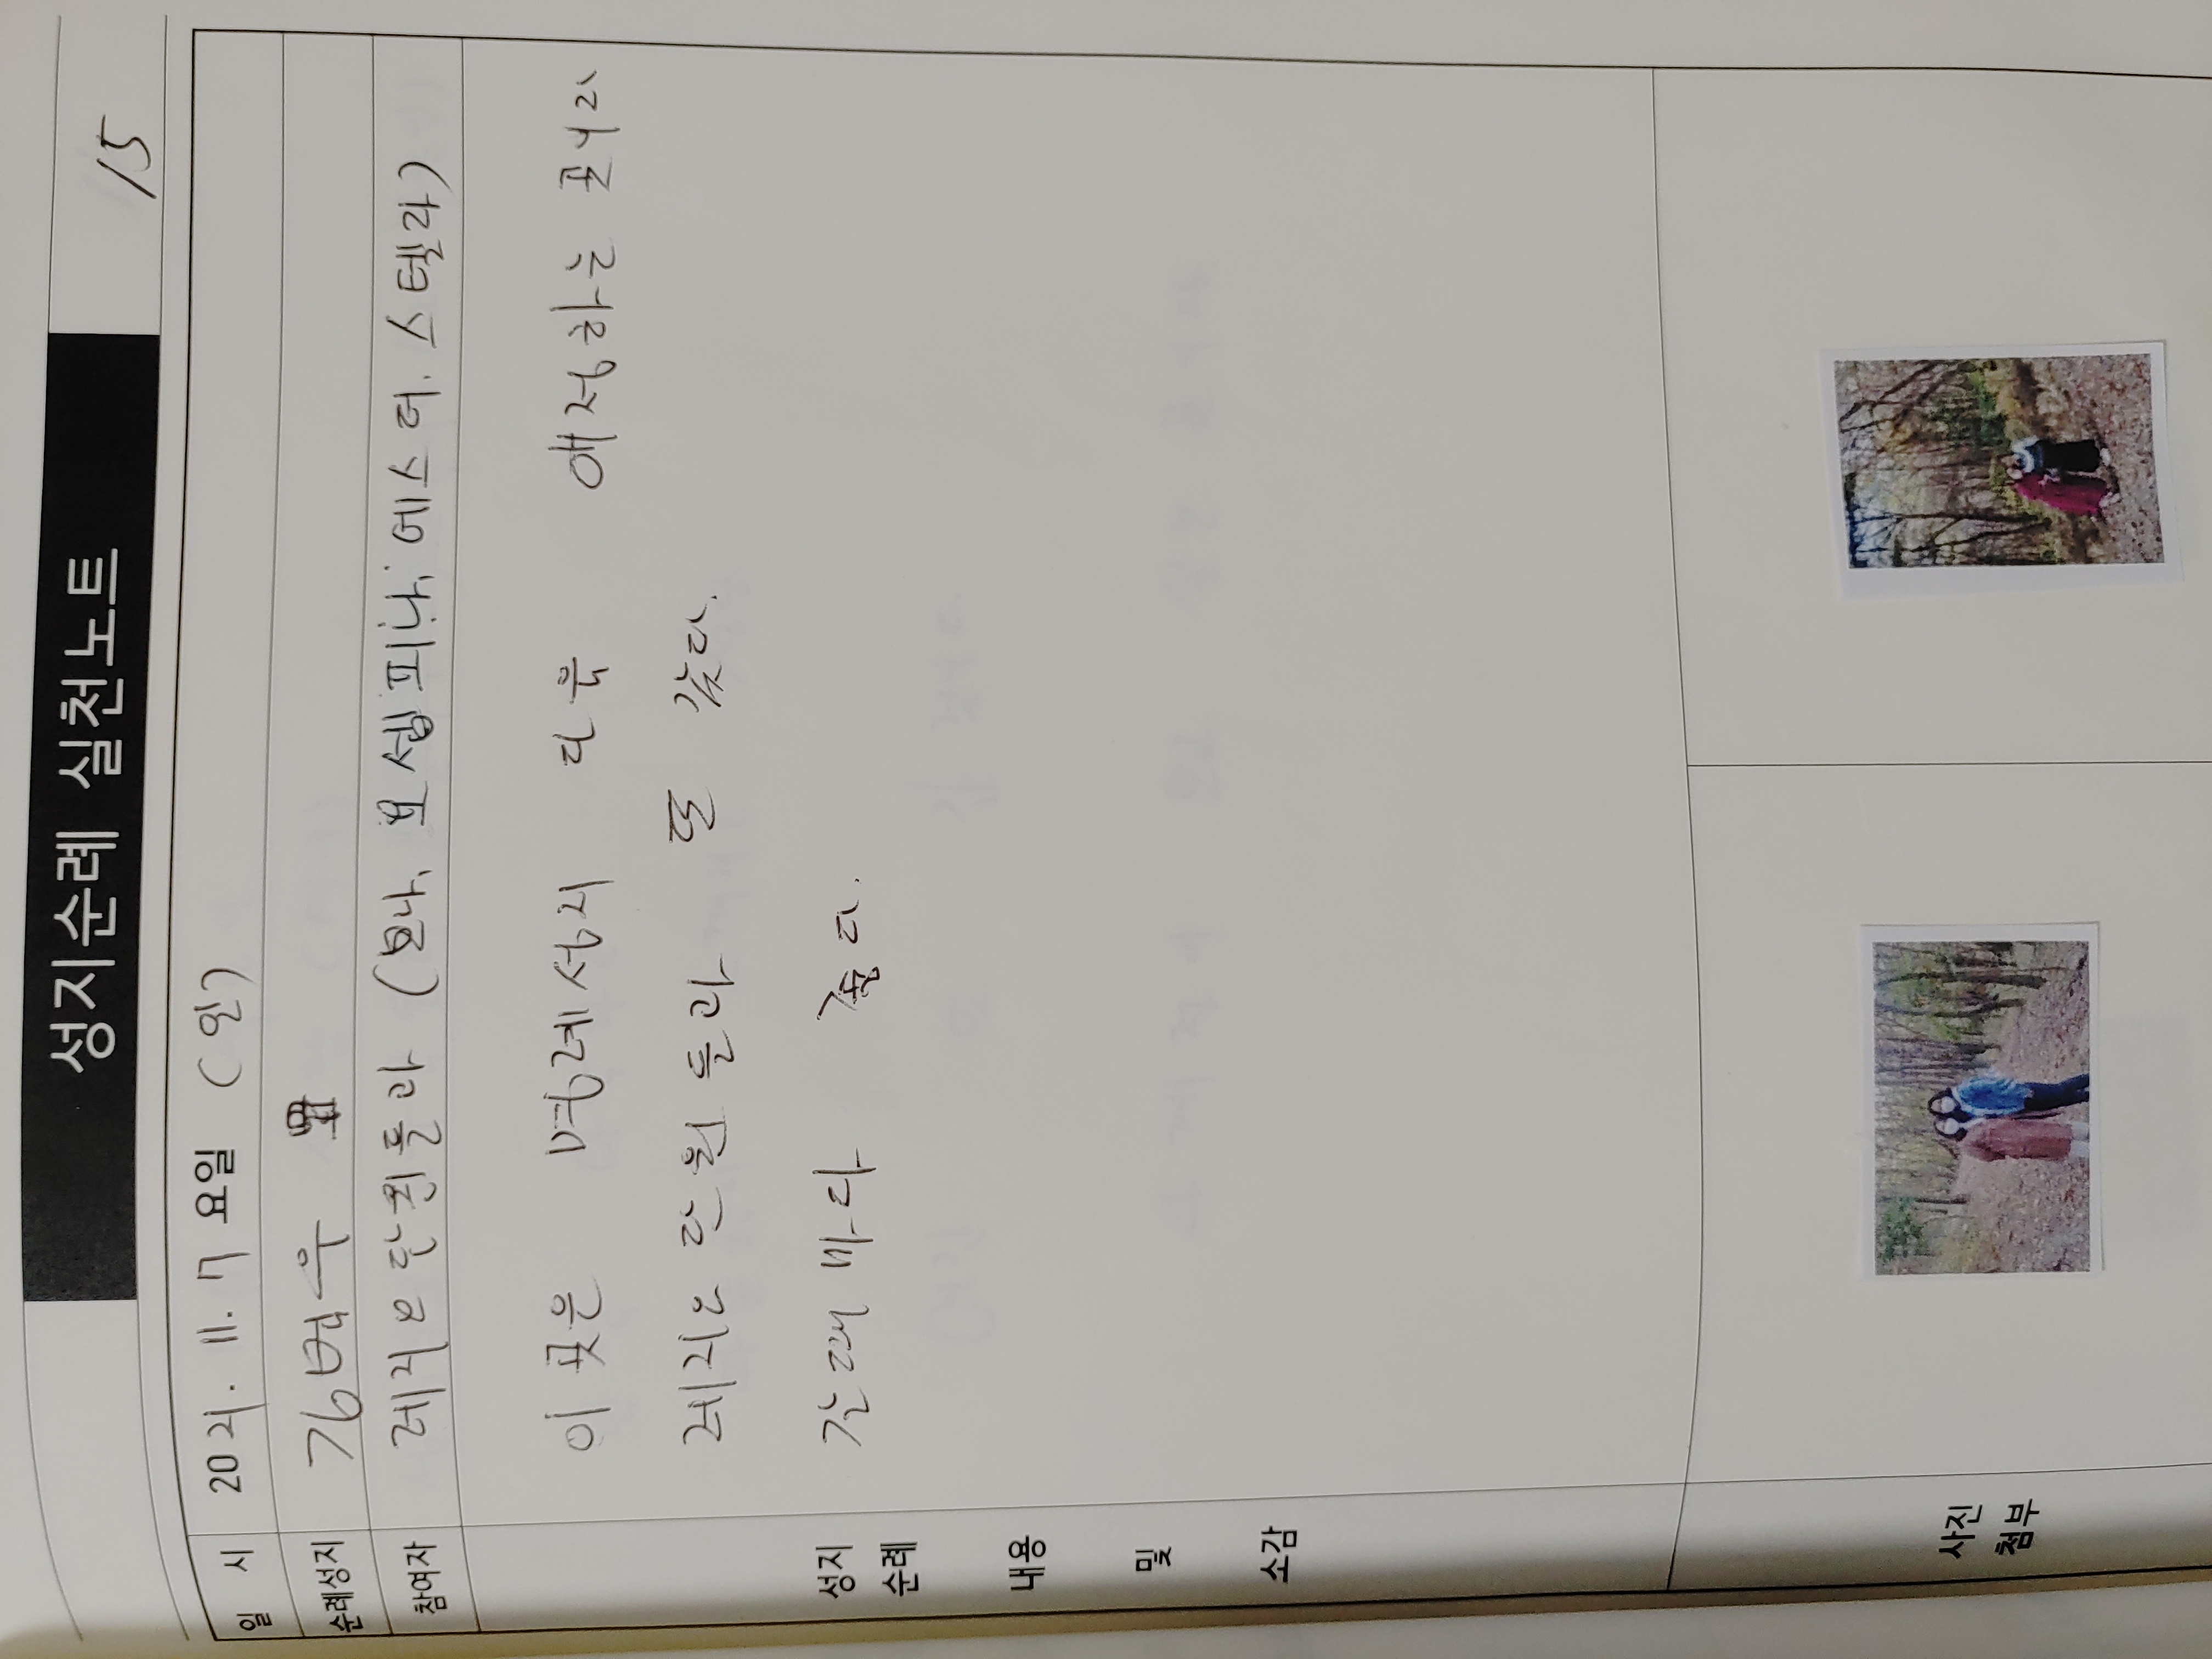 성지순례 실천노트
15
일 시 2021. 11. 7 요일 (일)
순례성지 김범우 묘
참여자 레지오 단원들과 (모니카, 요셉피나, 에스더, 스텔라)
이 곳은 명례성지 다음 애정하는 곳이라
레지오 단원 들과 또 갔다.
갈때 마다 좋다.
성지
순례
내용
및
소감
사진
첨부